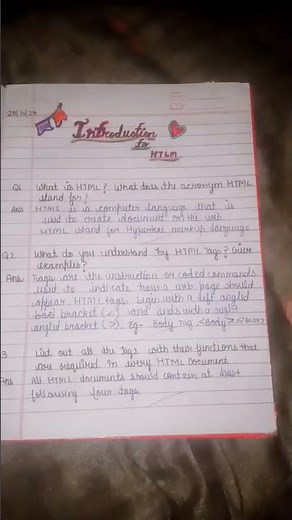 Introduction
to
HTLM
Q1 What is HTML? What does the acronym HTML
stand for?
Ans HTML is a computer language that is
used to create document on the web
HTML stand for Hypertext markup language
Q2 What do you understand by HTML Tags? Give
examples?
Ans Tags are the instruction or coded commands
used to indicate how a web page should
appear. HTML tags begin with a left angled
bracket (<) and ends with a right
angled bracket (>). Eg- Body Tag <Body>
3 List out all the tags with their functions that
are required in every HTML Document
Ans All HTML documents should contain at least
following four tags